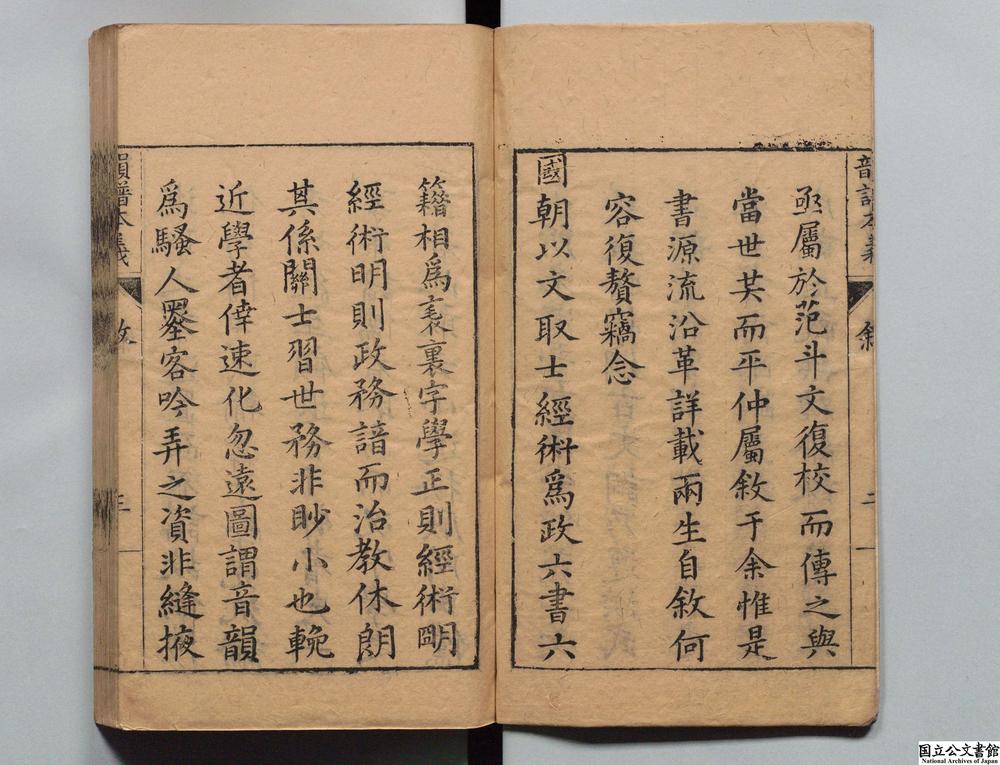 亟屬於范斗文復校而傳之與
當世共而平仲屬敘于余惟是
書源流沿革詳載兩生自敘何
容復贅竊念
國朝以文取士經術為政六書六
籍相為表裏字學正則經術明
經術明則政務諳而治教休朗
其係關士習世務非眇小也輓
近學者倖速化忽遠圖謂音韻
為騷人墨客吟弄之資非縫掖
音譜本義
敘
二
韻譜本義
敘
三
国立公文書館
National Archives of Japan